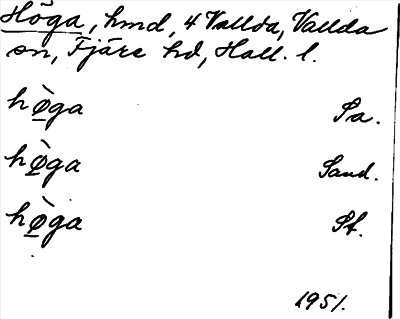 Höga, hmd, 4 Vallda, Vallda
sn, Fjäre hd, Hall. l.
hø̲̀ga Pa.
hø̲̀ga Sand.
hø̲̀ga St.
1951.